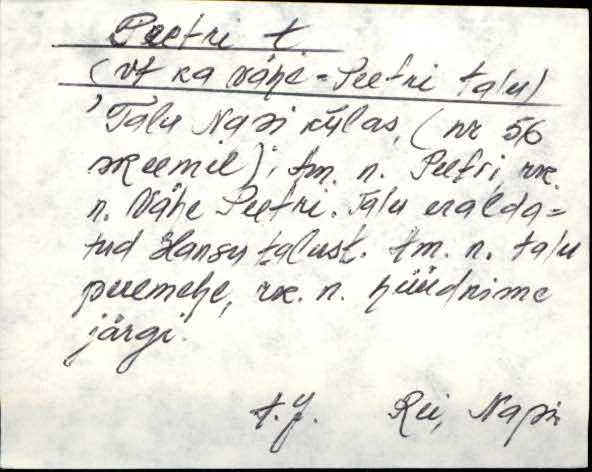 Peetri t.
(vt ka Vähe-Peetri talu)
Talu Napi külas, (nr 56
skeemil); tm. n. Peetri, rk.
n. Vähe Peetri. Talu eralda=
tud Hansu talust. tm. n. talu
peremehe, rk. n. hüüdnime
järgi.
t. J. Rei, Napi